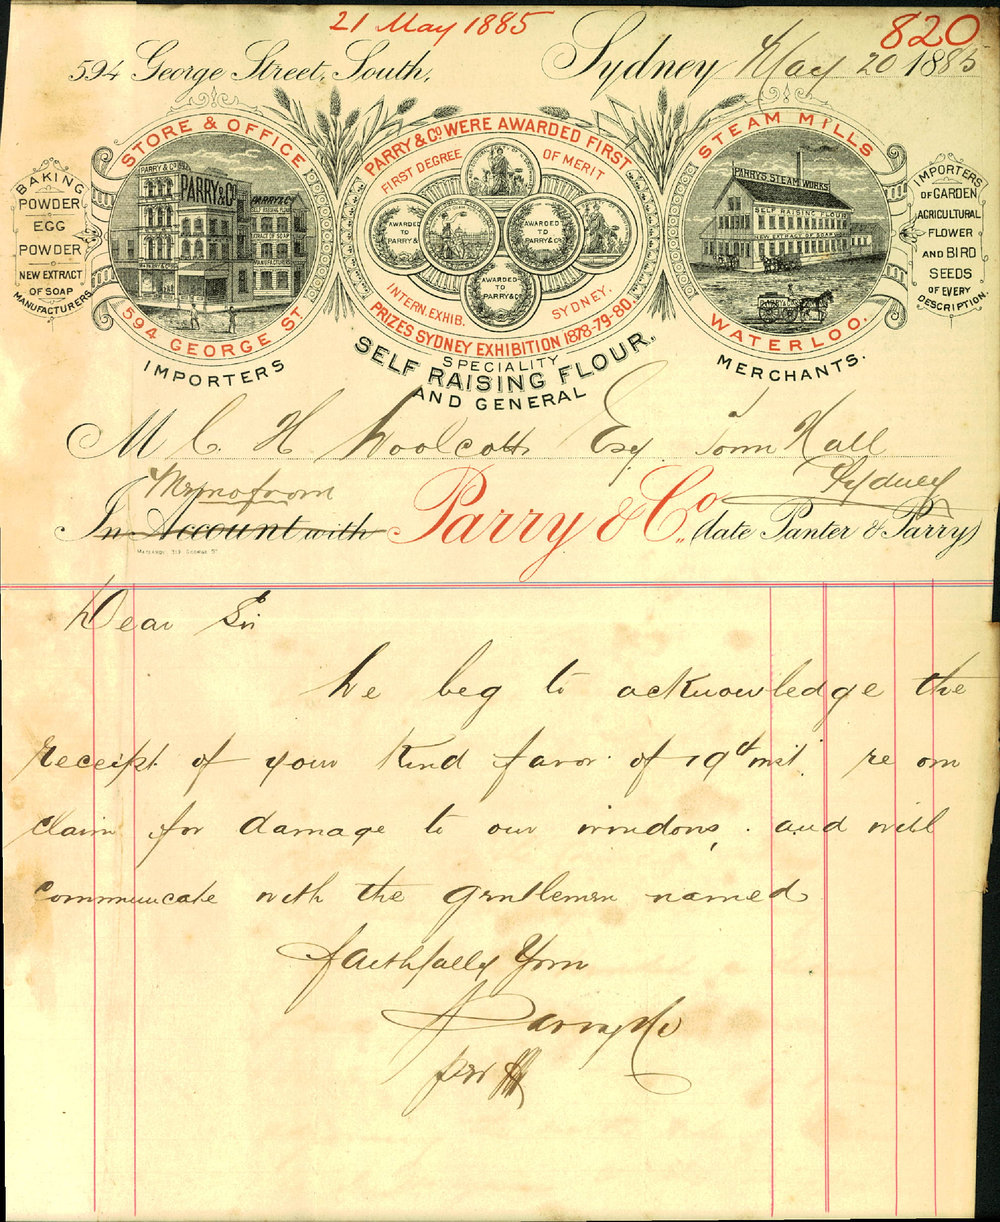 21 May 1885
820
594 George Street, South,
Sydney May 20 1885
STORE & OFFICE
PARRY & Co
PARRY & Co
PARRY & Co
594 GEORGE ST
IMPORTERS
BAKING
POWDER
EGG
POWDER
NEW EXTRACT
OF SOAP
MANUFACTURERS
PARRY & Co WERE AWARDED FIRST
FIRST DEGREE OF MERIT
AWARDED
TO
PARRY &
AWARDED
TO
PARRY & Co
AWARDED
TO
PARRY & Co
INTERN. EXHIB. SYDNEY.
PRIZES SYDNEY EXHIBITION 1878-79-80.
SPECIALITY
SELF RAISING FLOUR.
AND GENERAL
STEAM MILLS
PARRY'S STEAM WORKS
SELF RAISING FLOUR
NEW EXTRACT OF SOAP
WATERLOO.
MERCHANTS.
IMPORTERS
OF GARDEN
AGRICULTURAL
FLOWER
AND BIRD
SEEDS
OF EVERY
DESCRIPTION.
M C. H Woolcott Esq Town Hall
Sydney
Memo from
In Account with Parry & Co. (late Panter & Parry)
319 GEORGE ST
Dear Sir
We beg to acknowledge the
receipt of your kind favor of 19th inst re our
claim for damage to our windows, and will
communicate with the gentlemen named
Faithfully Yours
Parry & Co
per